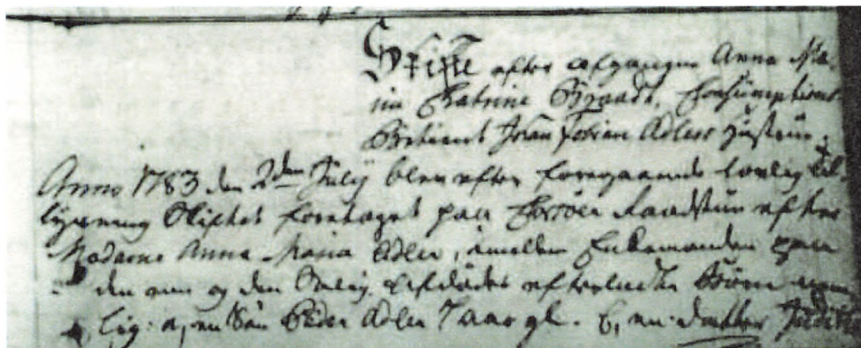 Skifte efter afgangne Anna Ma-
ria Catrine Brandt, Consumptions
Betient Johan Adlers Hustrue.
Anno 1783 den 2den Julij blev efter foregaaende lovlig til-
lysning Skiftet foretaget paa Corsöer Raadstue efter
Madame Anna Maria Adler, imellem Enkemanden paa
den ene og den Salig afdödes efterladte Börn
lig: a, en Sön Peder Adler 7 aar gl. b, en datter